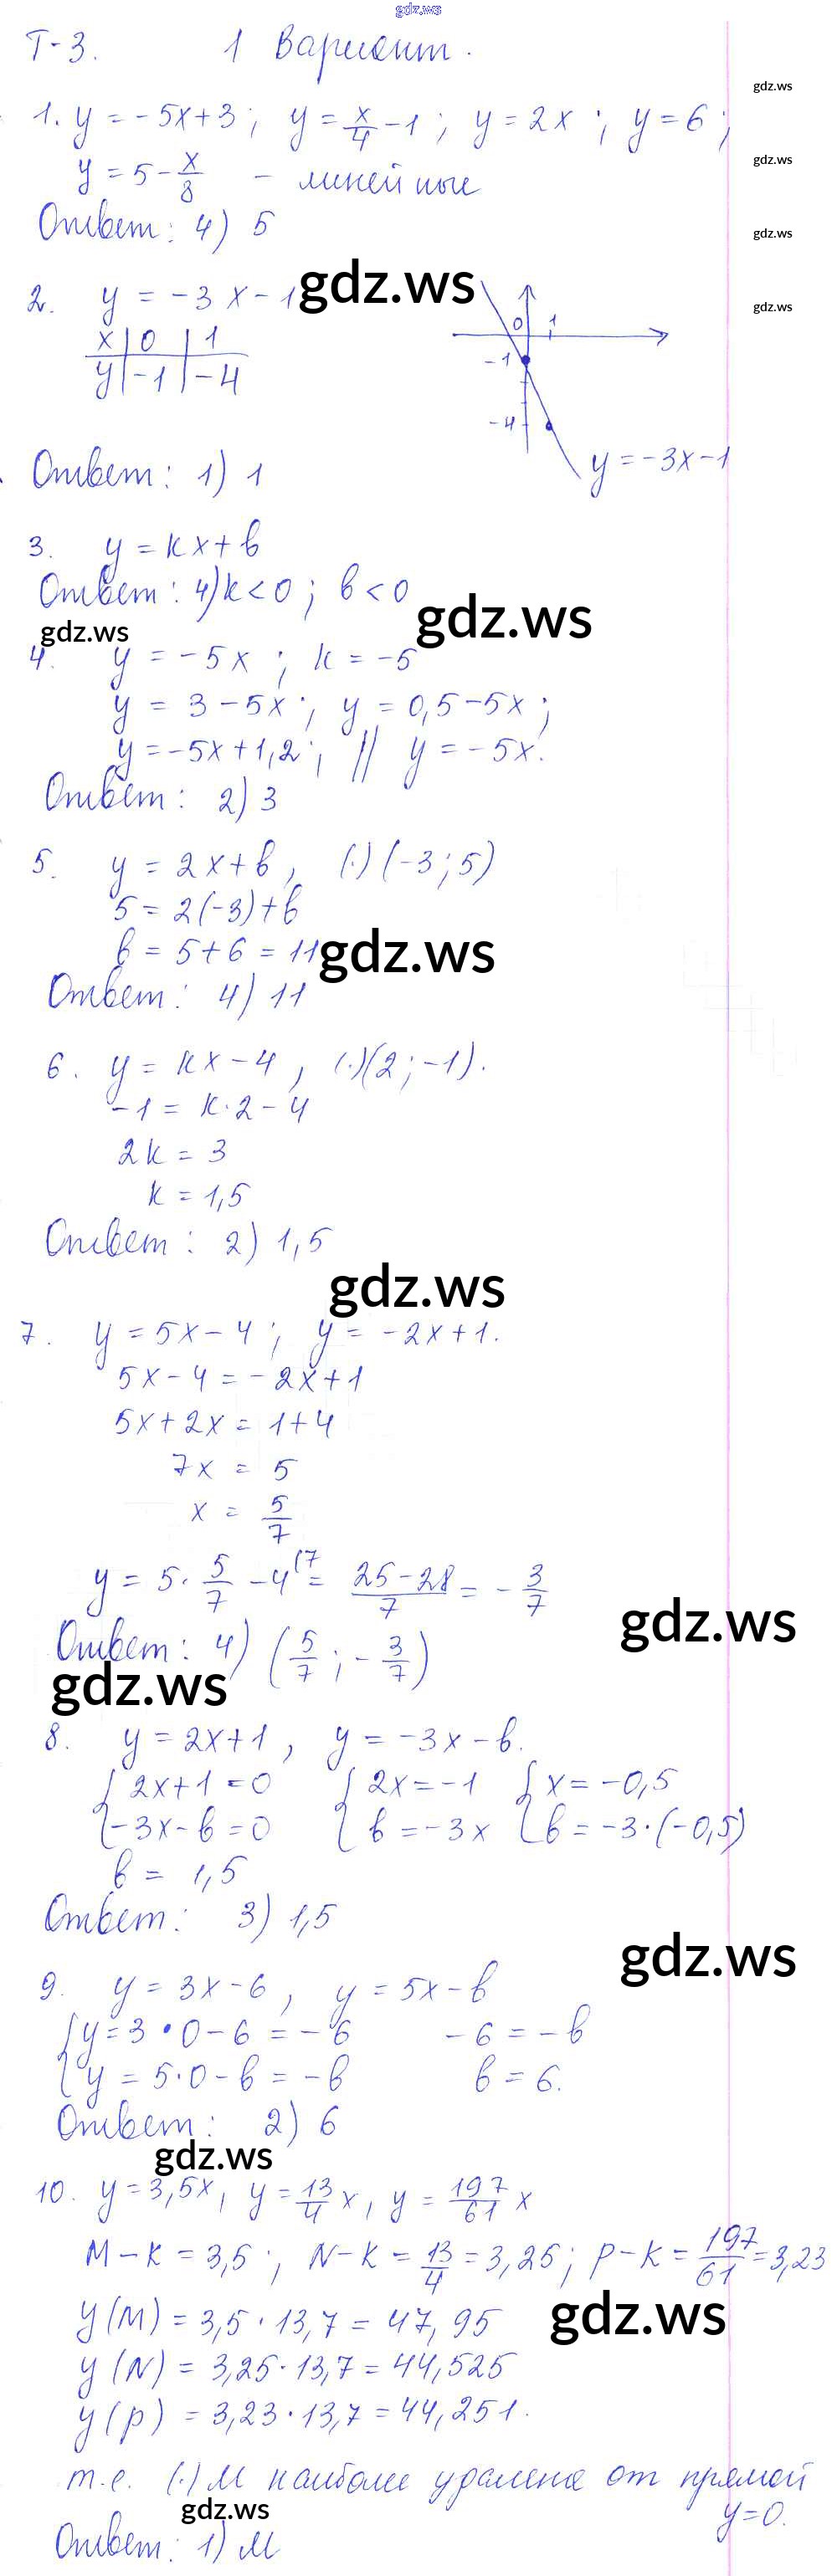 gdz.ws
Т-3. 1 Вариант.
gdz.ws
1. y = -5x+3; y = x/4 - 1; y = 2x; y = 6;
gdz.ws
y = 5 - x/8 - линейные
Ответ: 4) 5
gdz.ws
2. y = -3x-1
gdz.ws
gdz.ws
x | 0 | 1
y | -1 | -4
0 1
-1
-4
y = -3x-1
Ответ: 1) 1
3. y = kx + b
Ответ: 4) k<0; b<0
gdz.ws
gdz.ws
4. y = -5x; k = -5
y = 3-5x; y = 0,5-5x;
y = -5x+1,2; || y = -5x.
Ответ: 2) 3
5. y = 2x+b, (·) (-3; 5)
5 = 2(-3)+b
b = 5+6 = 11
gdz.ws
Ответ: 4) 11
6. y = kx-4, (·)(2; -1).
-1 = k·2-4
2k = 3
k = 1,5
Ответ: 2) 1,5
gdz.ws
7. y = 5x-4; y = -2x+1.
5x-4 = -2x+1
5x+2x = 1+4
7x = 5
x = 5/7
y = 5·5/7 - 4(7 = (25-28)/7 = -3/7
gdz.ws
Ответ: 4) (5/7; -3/7)
gdz.ws
8. y = 2x+1, y = -3x-b.
{ 2x+1 = 0 { 2x = -1 { x = -0,5
{ -3x-b = 0 { b = -3x { b = -3·(-0,5)
b = 1,5
Ответ: 3) 1,5
gdz.ws
9. y = 3x-6, y = 5x-b
{ y = 3·0-6 = -6 -6 = -b
{ y = 5·0-b = -b b = 6.
Ответ: 2) 6
gdz.ws
10. y = 3,5x, y = 13/4 x, y = 197/61 x
M-k = 3,5; N-k = 13/4 = 3,25; p-k = 197/61 = 3,23
gdz.ws
y(M) = 3,5·13,7 = 47,95
y(N) = 3,25·13,7 = 44,525
y(p) = 3,23·13,7 = 44,251.
т.е. (·) M наиболее удалена от прямой
y=0.
gdz.ws
Ответ: 1) M